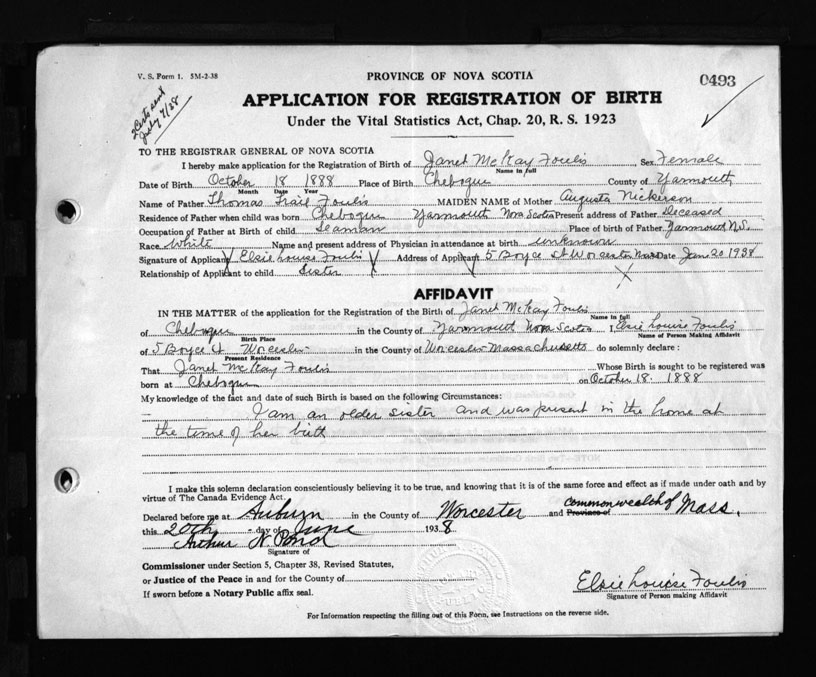 V. S. Form 1. 5M-2-38
PROVINCE OF NOVA SCOTIA
0493
2 Certs sent
July 7/38
APPLICATION FOR REGISTRATION OF BIRTH
Under the Vital Statistics Act, Chap. 20, R. S. 1923
TO THE REGISTRAR GENERAL OF NOVA SCOTIA
I hereby make application for the Registration of Birth of Janet McKay Foulis Sex Female
Name in full
Date of Birth October 18 1888 Place of Birth Chebogue County of Yarmouth
Month Date Year
Name of Father Thomas Trail Foulis MAIDEN NAME of Mother Augusta Nickerson
Residence of Father when child was born Chebogue Yarmouth Nova Scotia Present address of Father Deceased
Occupation of Father at Birth of child Seaman Place of birth of Father Yarmouth N.S.
Race White Name and present address of Physician in attendance at birth unknown
Signature of Applicant Elsie Louise Foulis Address of Applicant 5 Boyce St Worcester Mass Date Jan 20 1938
Relationship of Applicant to child Sister
AFFIDAVIT
IN THE MATTER of the application for the Registration of the Birth of Janet McKay Foulis
Name in full
of Chebogue in the County of Yarmouth Nova Scotia I, Elsie Louise Foulis
Birth Place Name of Person Making Affidavit
of 5 Boyce St Worcester in the County of Worcester Massachusetts do solemnly declare :
Present Residence
That Janet McKay Foulis Whose Birth is sought to be registered was
born at Chebogue on October 18. 1888
My knowledge of the fact and date of such Birth is based on the following Circumstances:
I am an older sister and was present in the home at
the time of her birth
I make this solemn declaration conscientiously believing it to be true, and knowing that it is of the same force and effect as if made under oath and by
virtue of The Canada Evidence Act.
Declared before me at Auburn in the County of Worcester and Province of Commonwealth of Mass.
this 20th day of June 1938
Arthur N. Pond
Signature of
Commissioner under Section 5, Chapter 38, Revised Statutes,
or Justice of the Peace in and for the County of
If sworn before a Notary Public affix seal.
Elsie Louise Foulis
Signature of Person making Affidavit
For Information respecting the filling out of this Form, see Instructions on the reverse side.